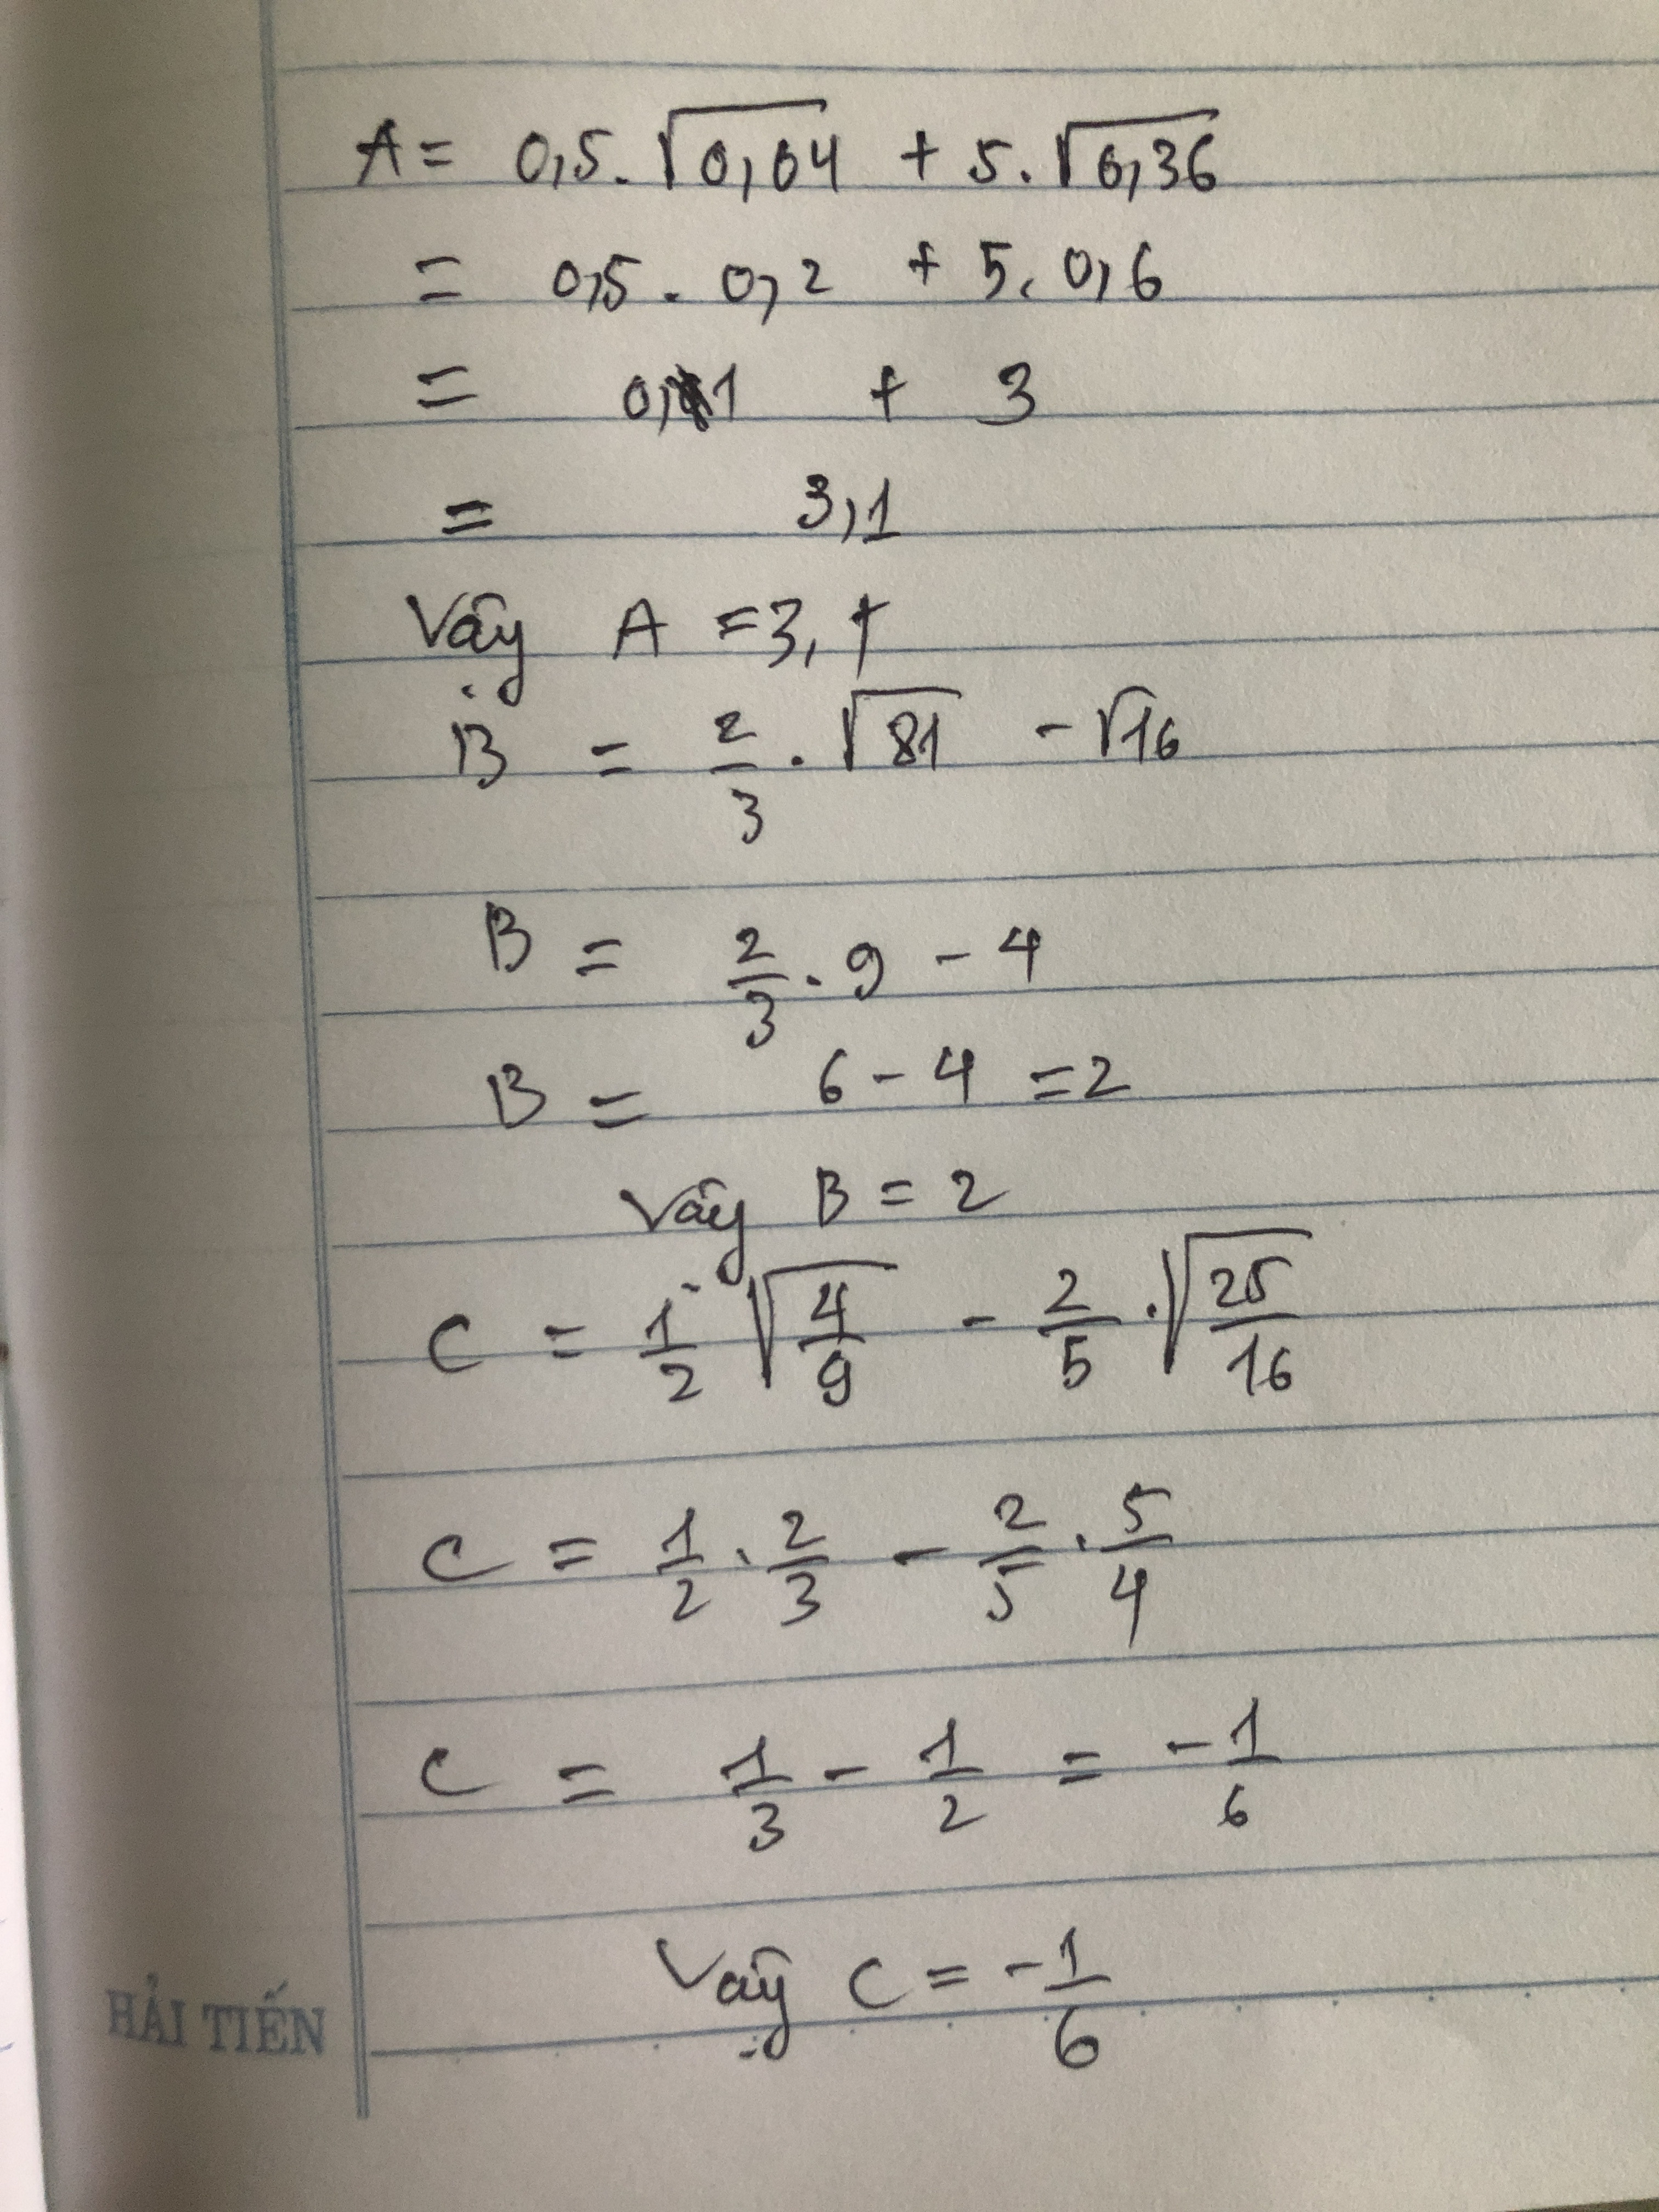 A = 0,5 . √0,04 + 5 . √0,36
= 0,5 . 0,2 + 5 . 0,6
= 0,1 + 3
= 3,1
Vậy A = 3,1
B = 2/3 . √81 - √16
B = 2/3 . 9 - 4
B = 6 - 4 = 2
Vậy B = 2
C = 1/2 √(4/9) - 2/5 . √(25/16)
C = 1/2 . 2/3 - 2/5 . 5/4
C = 1/3 - 1/2 = -1/6
Vậy C = -1/6
HẢI TIẾN